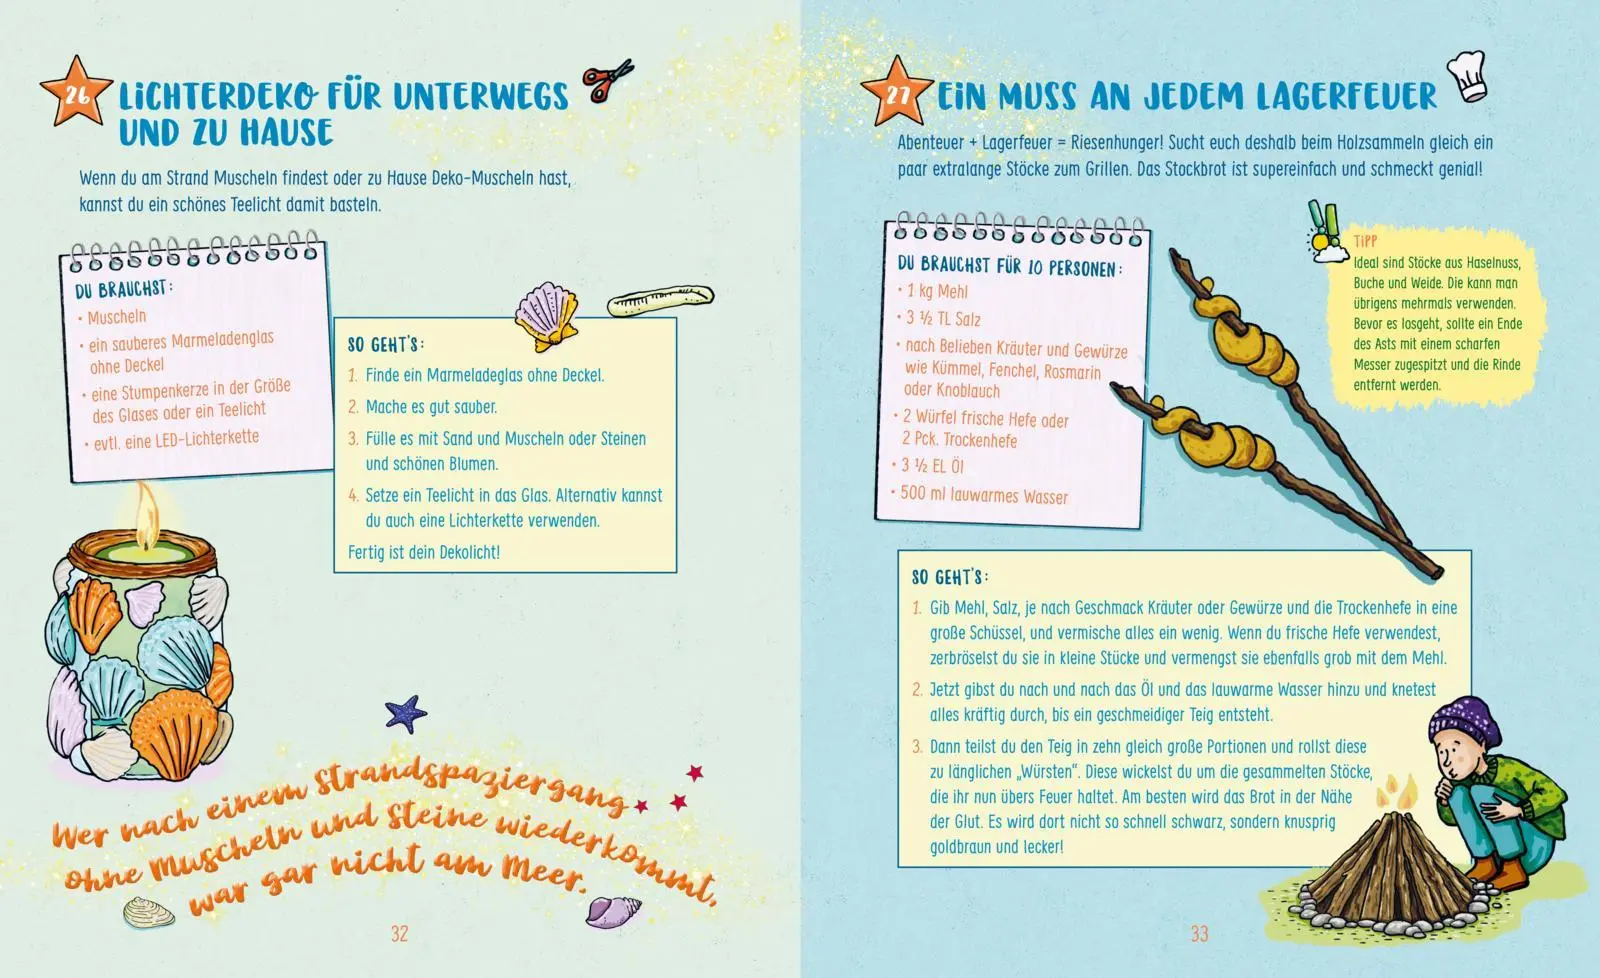 26
LICHTERDEKO FÜR UNTERWEGS
UND ZU HAUSE
Wenn du am Strand Muscheln findest oder zu Hause Deko-Muscheln hast,
kannst du ein schönes Teelicht damit basteln.
DU BRAUCHST:
• Muscheln
• ein sauberes Marmeladenglas
ohne Deckel
• eine Stumpenkerze in der Größe
des Glases oder ein Teelicht
• evtl. eine LED-Lichterkette
SO GEHT'S:
1. Finde ein Marmeladeglas ohne Deckel.
2. Mache es gut sauber.
3. Fülle es mit Sand und Muscheln oder Steinen
und schönen Blumen.
4. Setze ein Teelicht in das Glas. Alternativ kannst
du auch eine Lichterkette verwenden.
Fertig ist dein Dekolicht!
Wer nach einem Strandspaziergang
ohne Muscheln und Steine wiederkommt,
war gar nicht am Meer.
32
27
EIN MUSS AN JEDEM LAGERFEUER
Abenteuer + Lagerfeuer = Riesenhunger! Sucht euch deshalb beim Holzsammeln gleich ein
paar extralange Stöcke zum Grillen. Das Stockbrot ist supereinfach und schmeckt genial!
DU BRAUCHST FÜR 10 PERSONEN:
• 1 kg Mehl
• 3 ½ TL Salz
• nach Belieben Kräuter und Gewürze
wie Kümmel, Fenchel, Rosmarin
oder Knoblauch
• 2 Würfel frische Hefe oder
2 Pck. Trockenhefe
• 3 ½ EL Öl
• 500 ml lauwarmes Wasser
TIPP
Ideal sind Stöcke aus Haselnuss,
Buche und Weide. Die kann man
übrigens mehrmals verwenden.
Bevor es losgeht, sollte ein Ende
des Asts mit einem scharfen
Messer zugespitzt und die Rinde
entfernt werden.
SO GEHT'S:
1. Gib Mehl, Salz, je nach Geschmack Kräuter oder Gewürze und die Trockenhefe in eine
große Schüssel, und vermische alles ein wenig. Wenn du frische Hefe verwendest,
zerbröselst du sie in kleine Stücke und vermengst sie ebenfalls grob mit dem Mehl.
2. Jetzt gibst du nach und nach das Öl und das lauwarme Wasser hinzu und knetest
alles kräftig durch, bis ein geschmeidiger Teig entsteht.
3. Dann teilst du den Teig in zehn gleich große Portionen und rollst diese
zu länglichen „Würsten“. Diese wickelst du um die gesammelten Stöcke,
die ihr nun übers Feuer haltet. Am besten wird das Brot in der Nähe
der Glut. Es wird dort nicht so schnell schwarz, sondern knusprig
goldbraun und lecker!
33